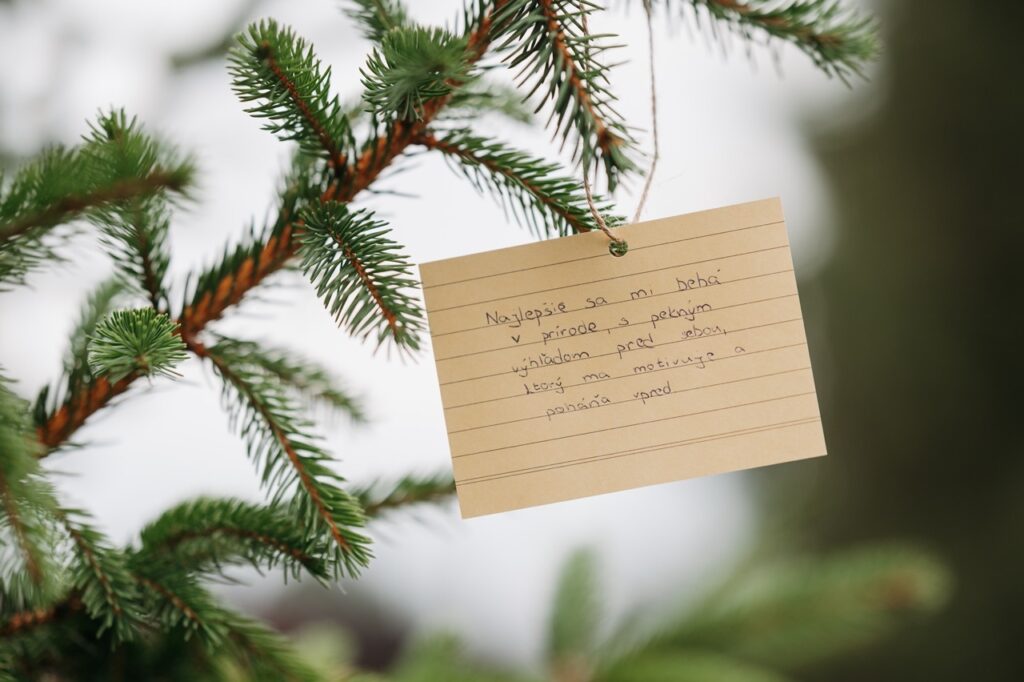 Najlepšie sa mi behá
v prírode, s pekným
výhľadom pred sebou,
ktorý ma motivuje a
poháňa vpred